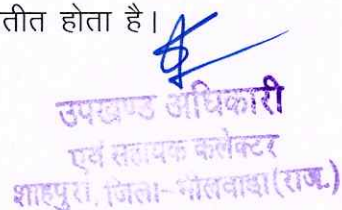 तीत होता है।
उपखण्ड अधिकारी
एवं सहायक कलेक्टर
शाहपुरा, जिला-भीलवाड़ा (राज.)